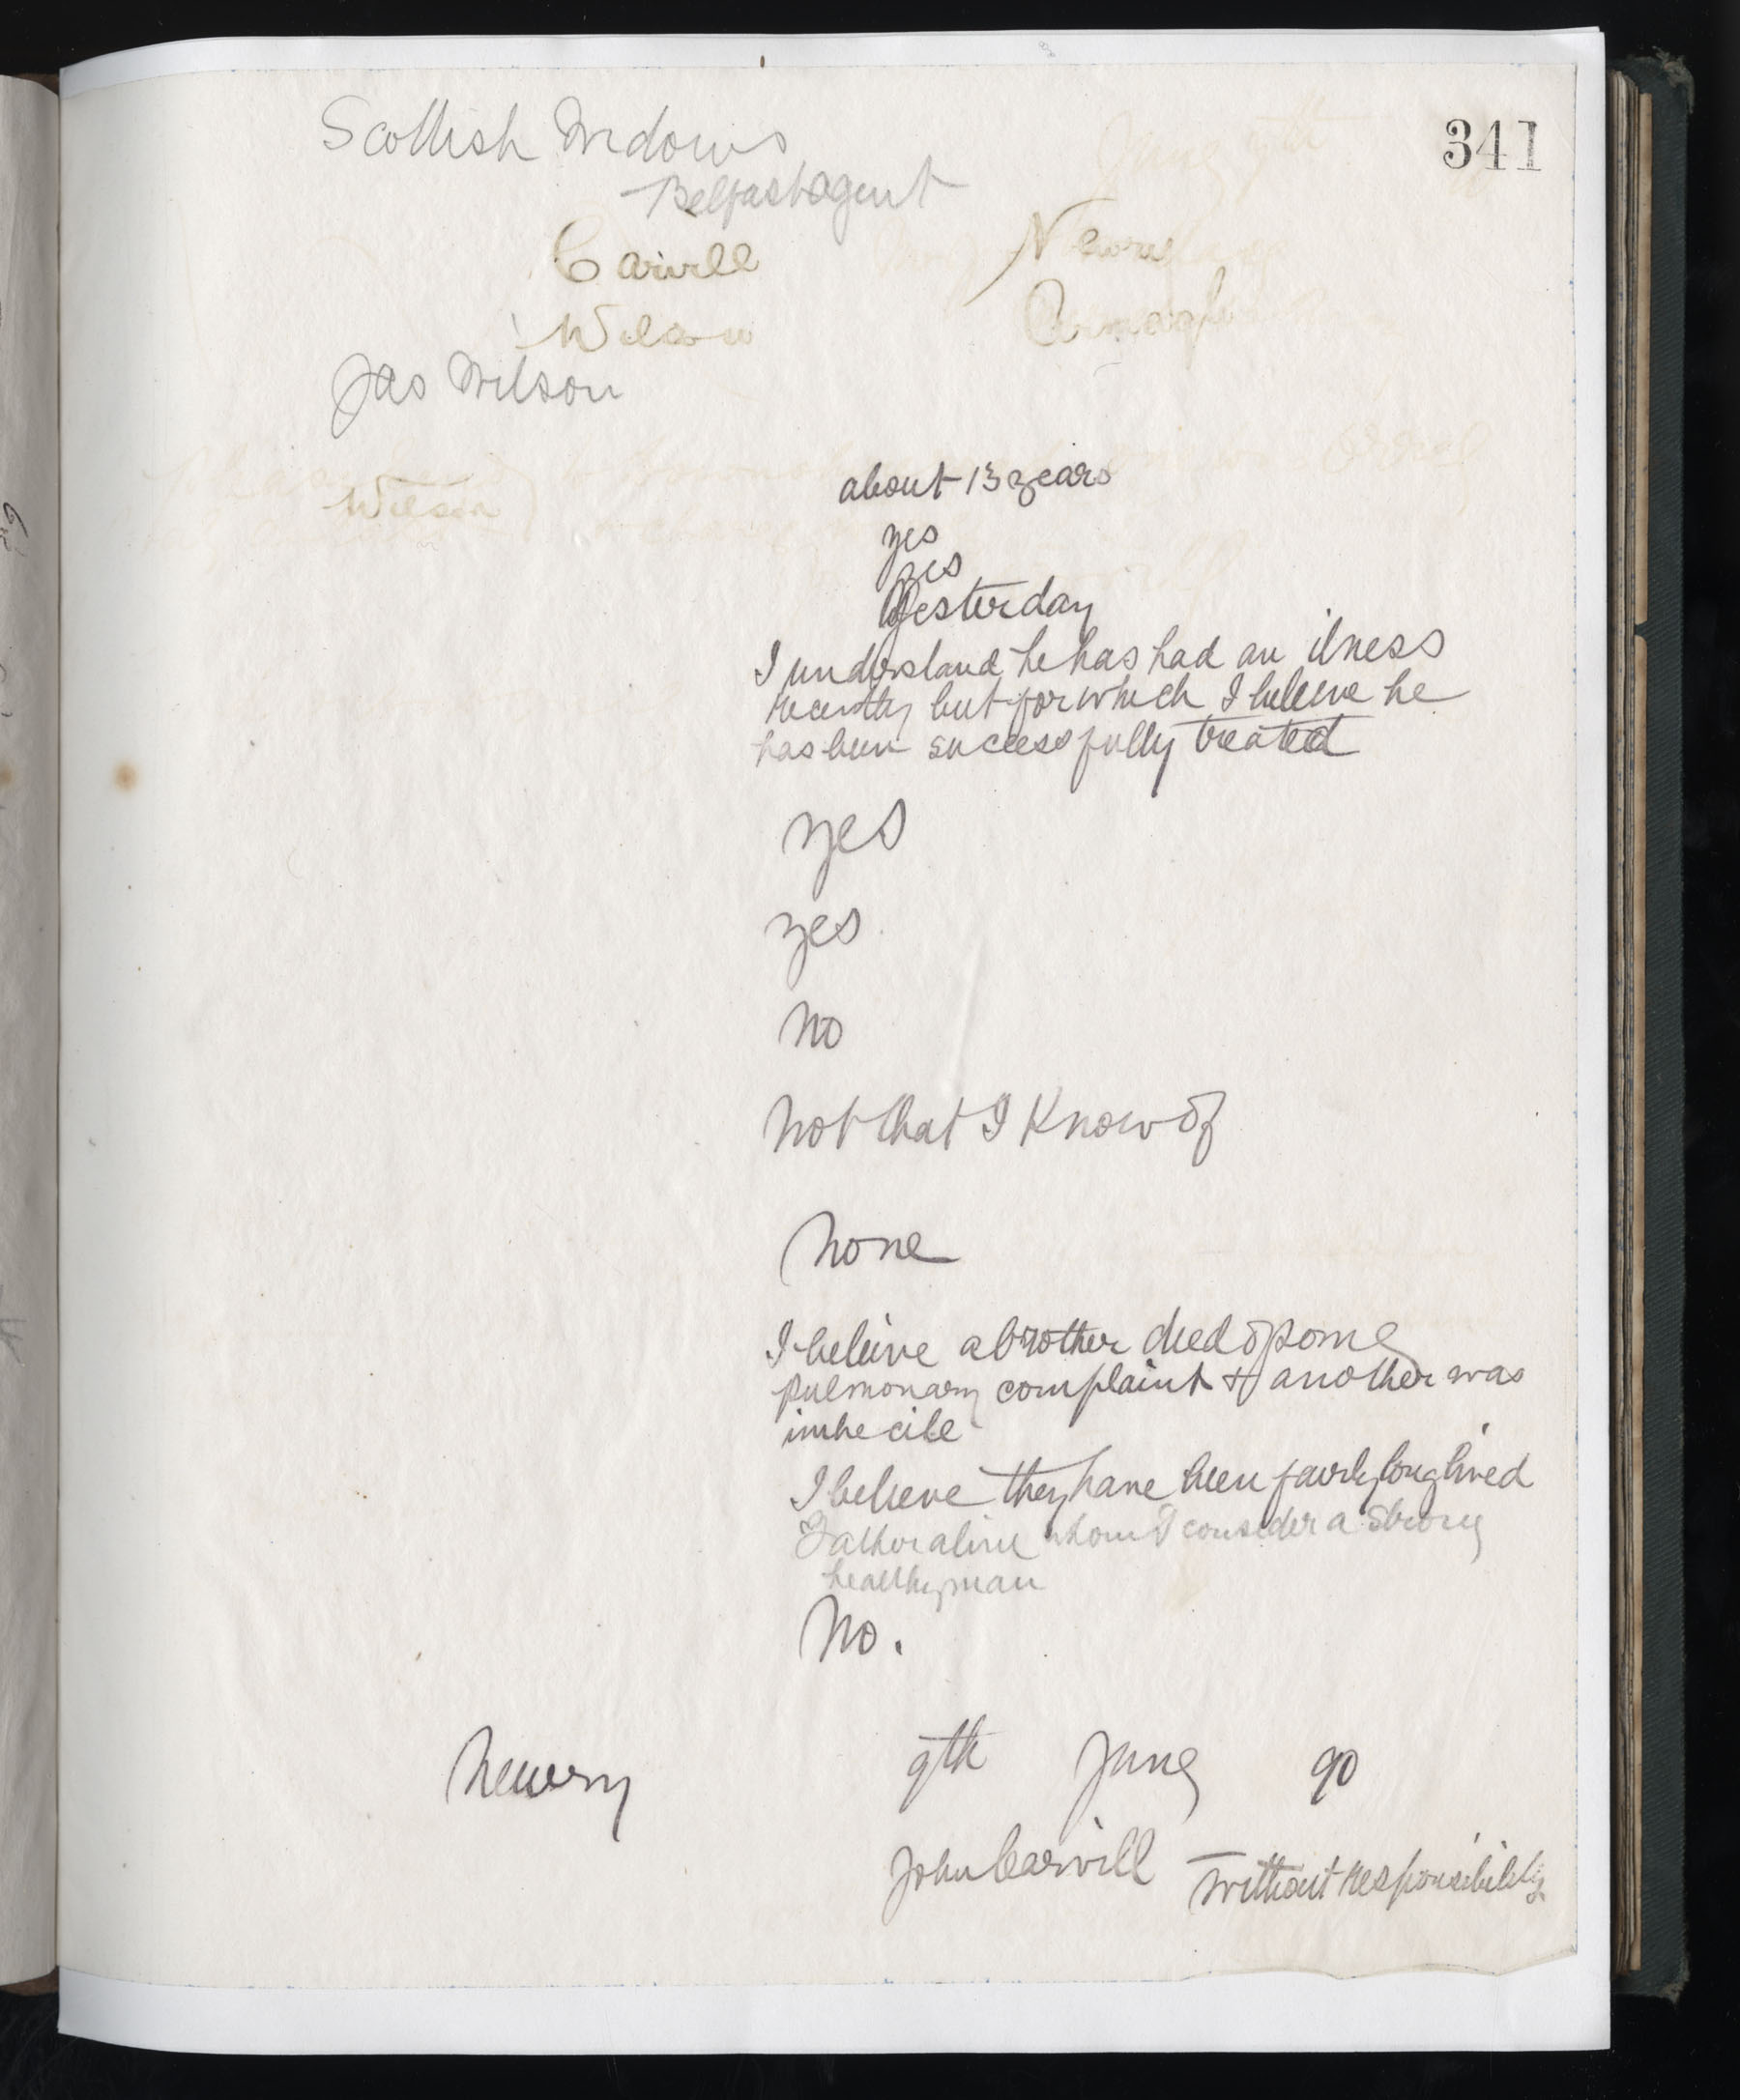 341
Scottish Widows
Belfast agent
Carvill Newry
Wilson Armagh
Jas Wilson
about 13 years
Wilson
yes
yes
Yesterday
I understand he has had an ilness
recently but for which I beleive he
has been sucessfully treated
yes
yes
No
Not that I Know of
None
I beleive a brother died of some
pulmonary complaint & another was
imbecile
I believe they have been fairly long lived
Father alive whom I consider a strong
healthy man
No.
Newry 9th Jany 90
John Carvill without responsibility